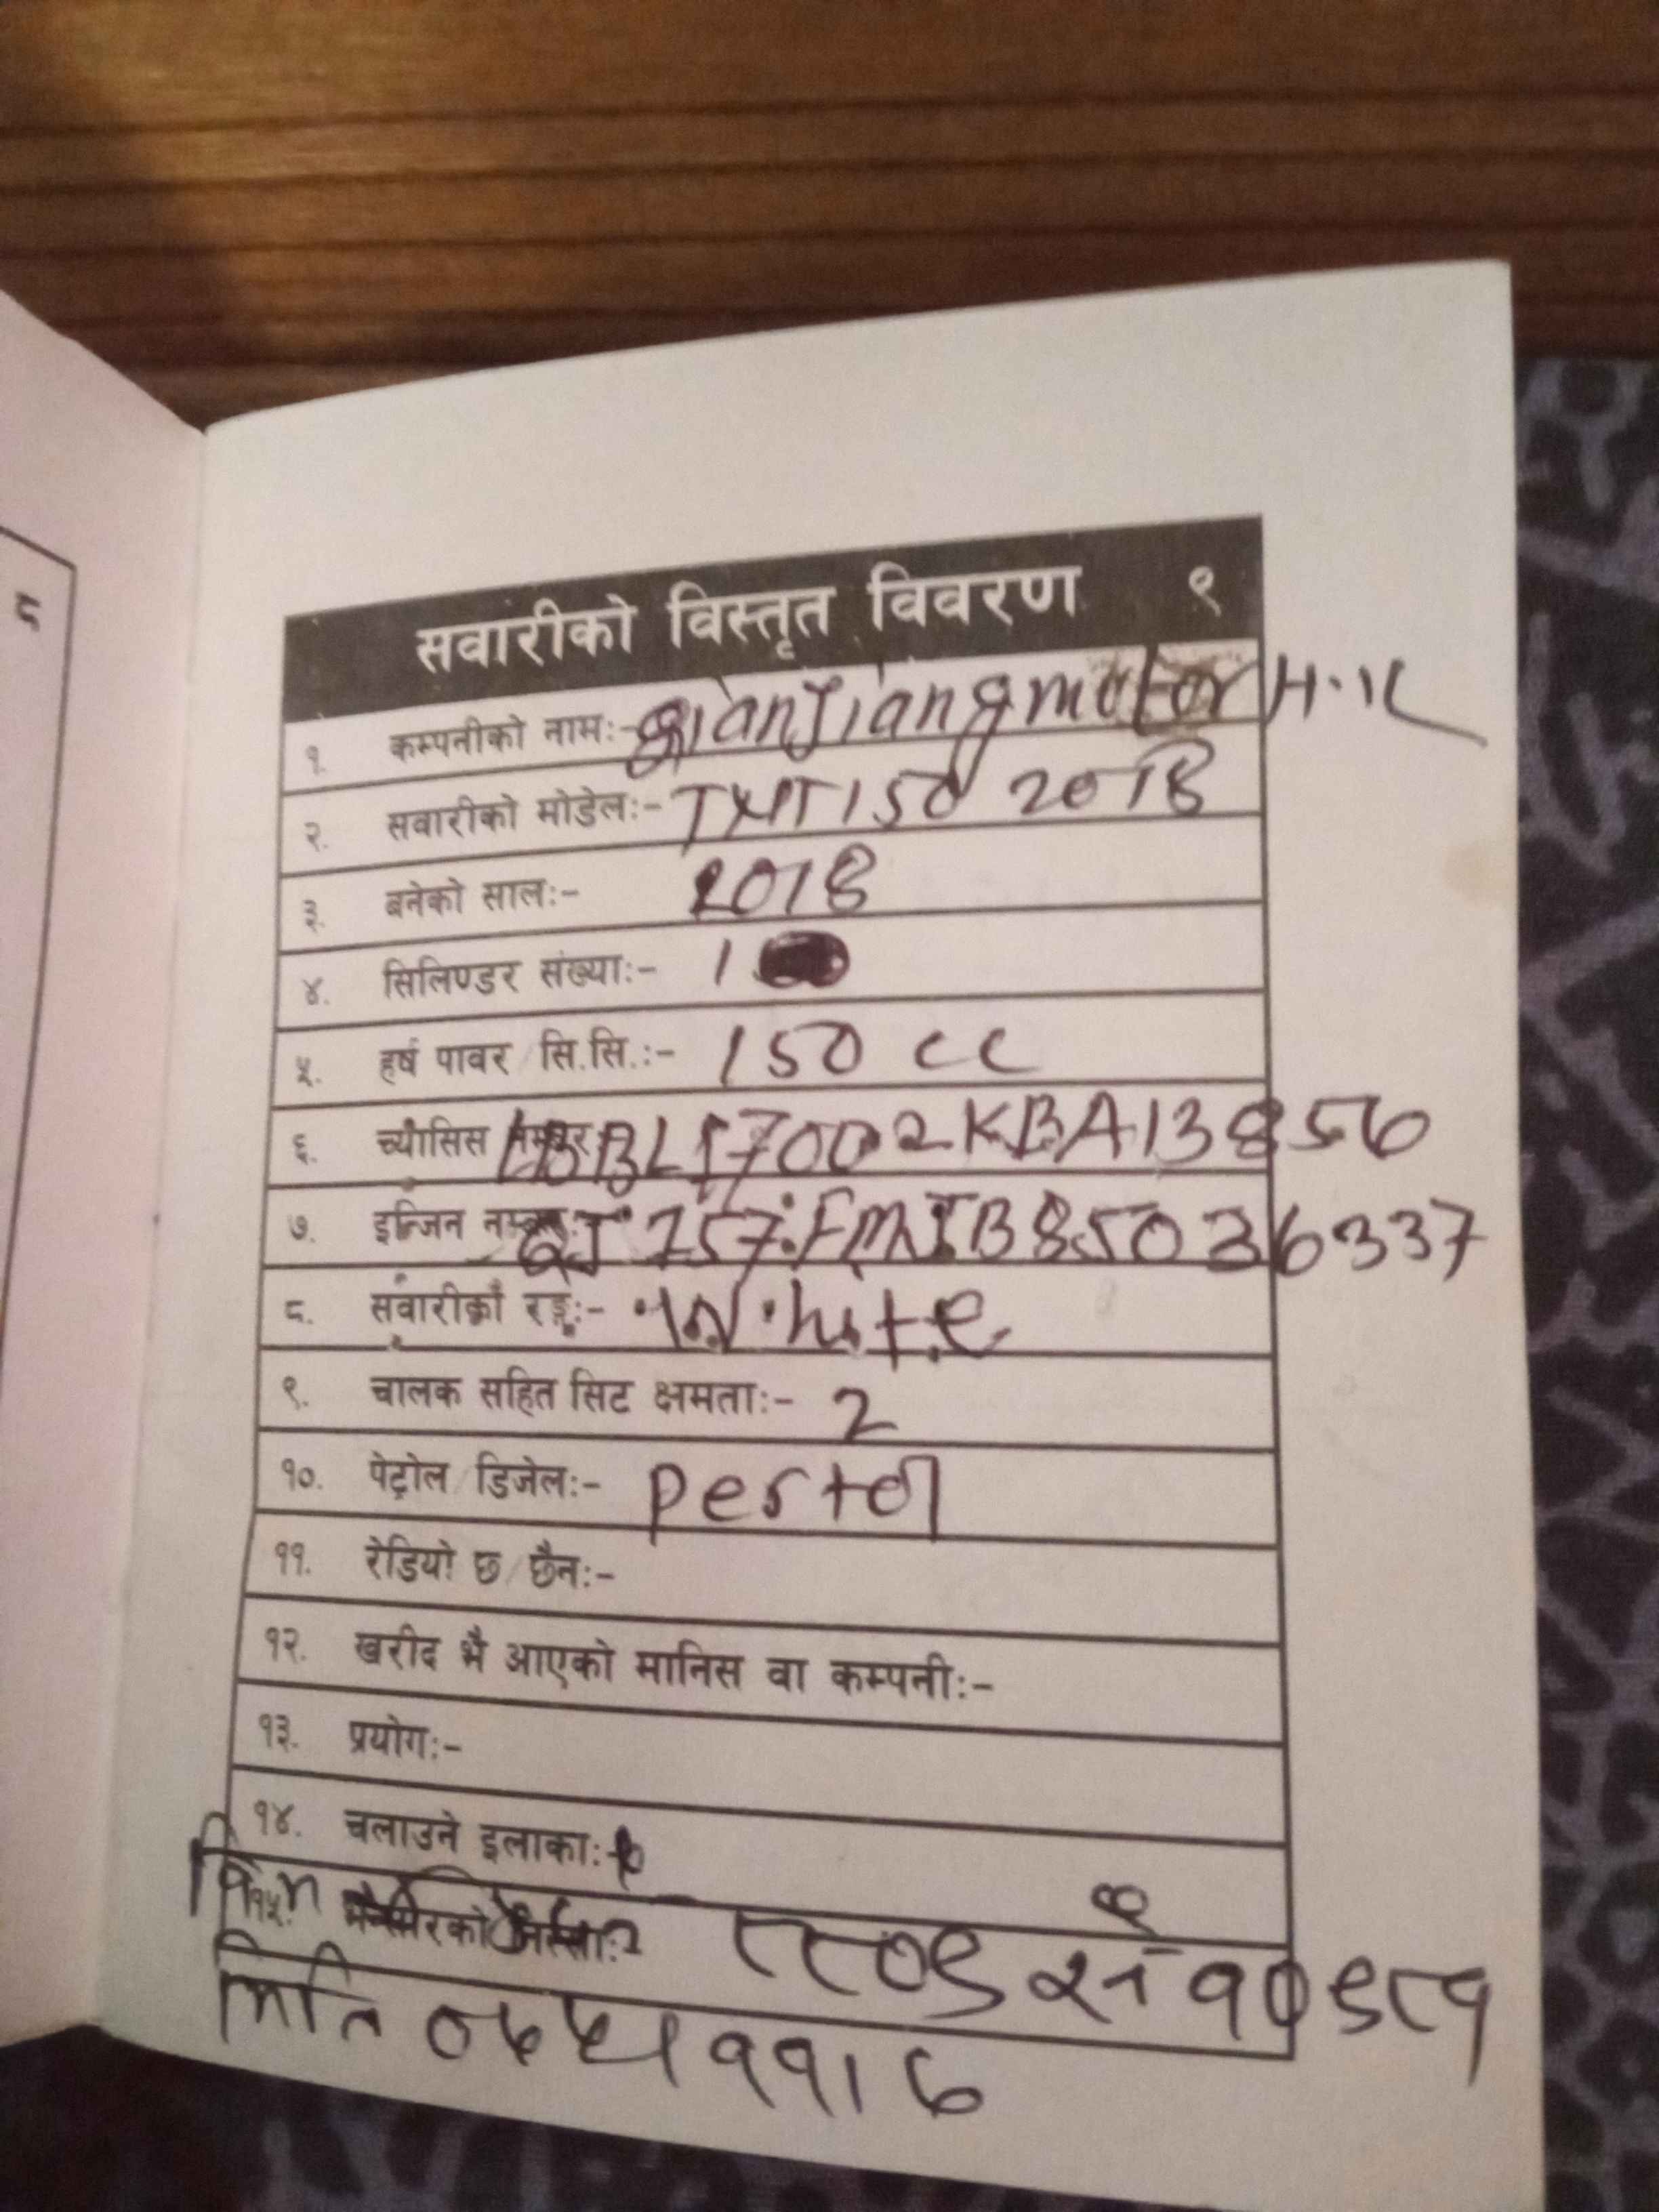 ८
सवारीको विस्तृत विवरण ९
१. कम्पनीको नाम:- QianJiang motor H.K
२. सवारीको मोडेल:- TXT150 2018
३. बनेको साल:- 2018
४. सिलिण्डर संख्या:- 1
५. हर्ष पावर / सि.सि.:- 150 CC
६. च्यासिस नम्बर:- LBBLT7002KBA13856
७. इन्जिन नम्बर:- QJ157FMJB85036337
८. सवारीको रङ्ग:- White
९. चालक सहित सिट क्षमता:- 2
१०. पेट्रोल / डिजेल:- pertol
११. रेडियो छ / छैन:-
१२. खरीद भै आएको मानिस वा कम्पनी:-
१३. प्रयोग:-
१४. चलाउने इलाका:-
१५.
मिति